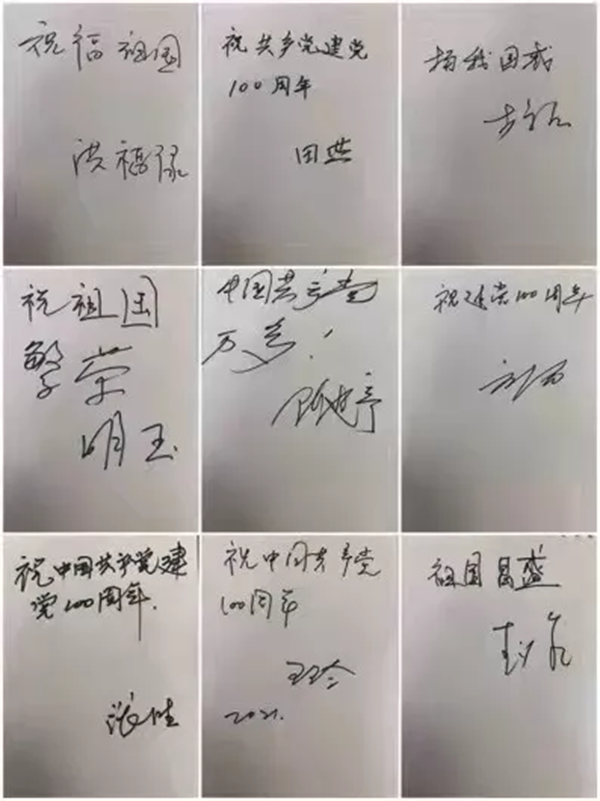 祝福祖国
洪福禄
祝共产党建党
100周年
田燕
扬我国威
祝祖国
繁荣
明玉
中国共产党
万岁!
祝建党100周年
祝中国共产党建
党100周年.
张佳
祝中国共产党
100周年
2021.
祖国昌盛